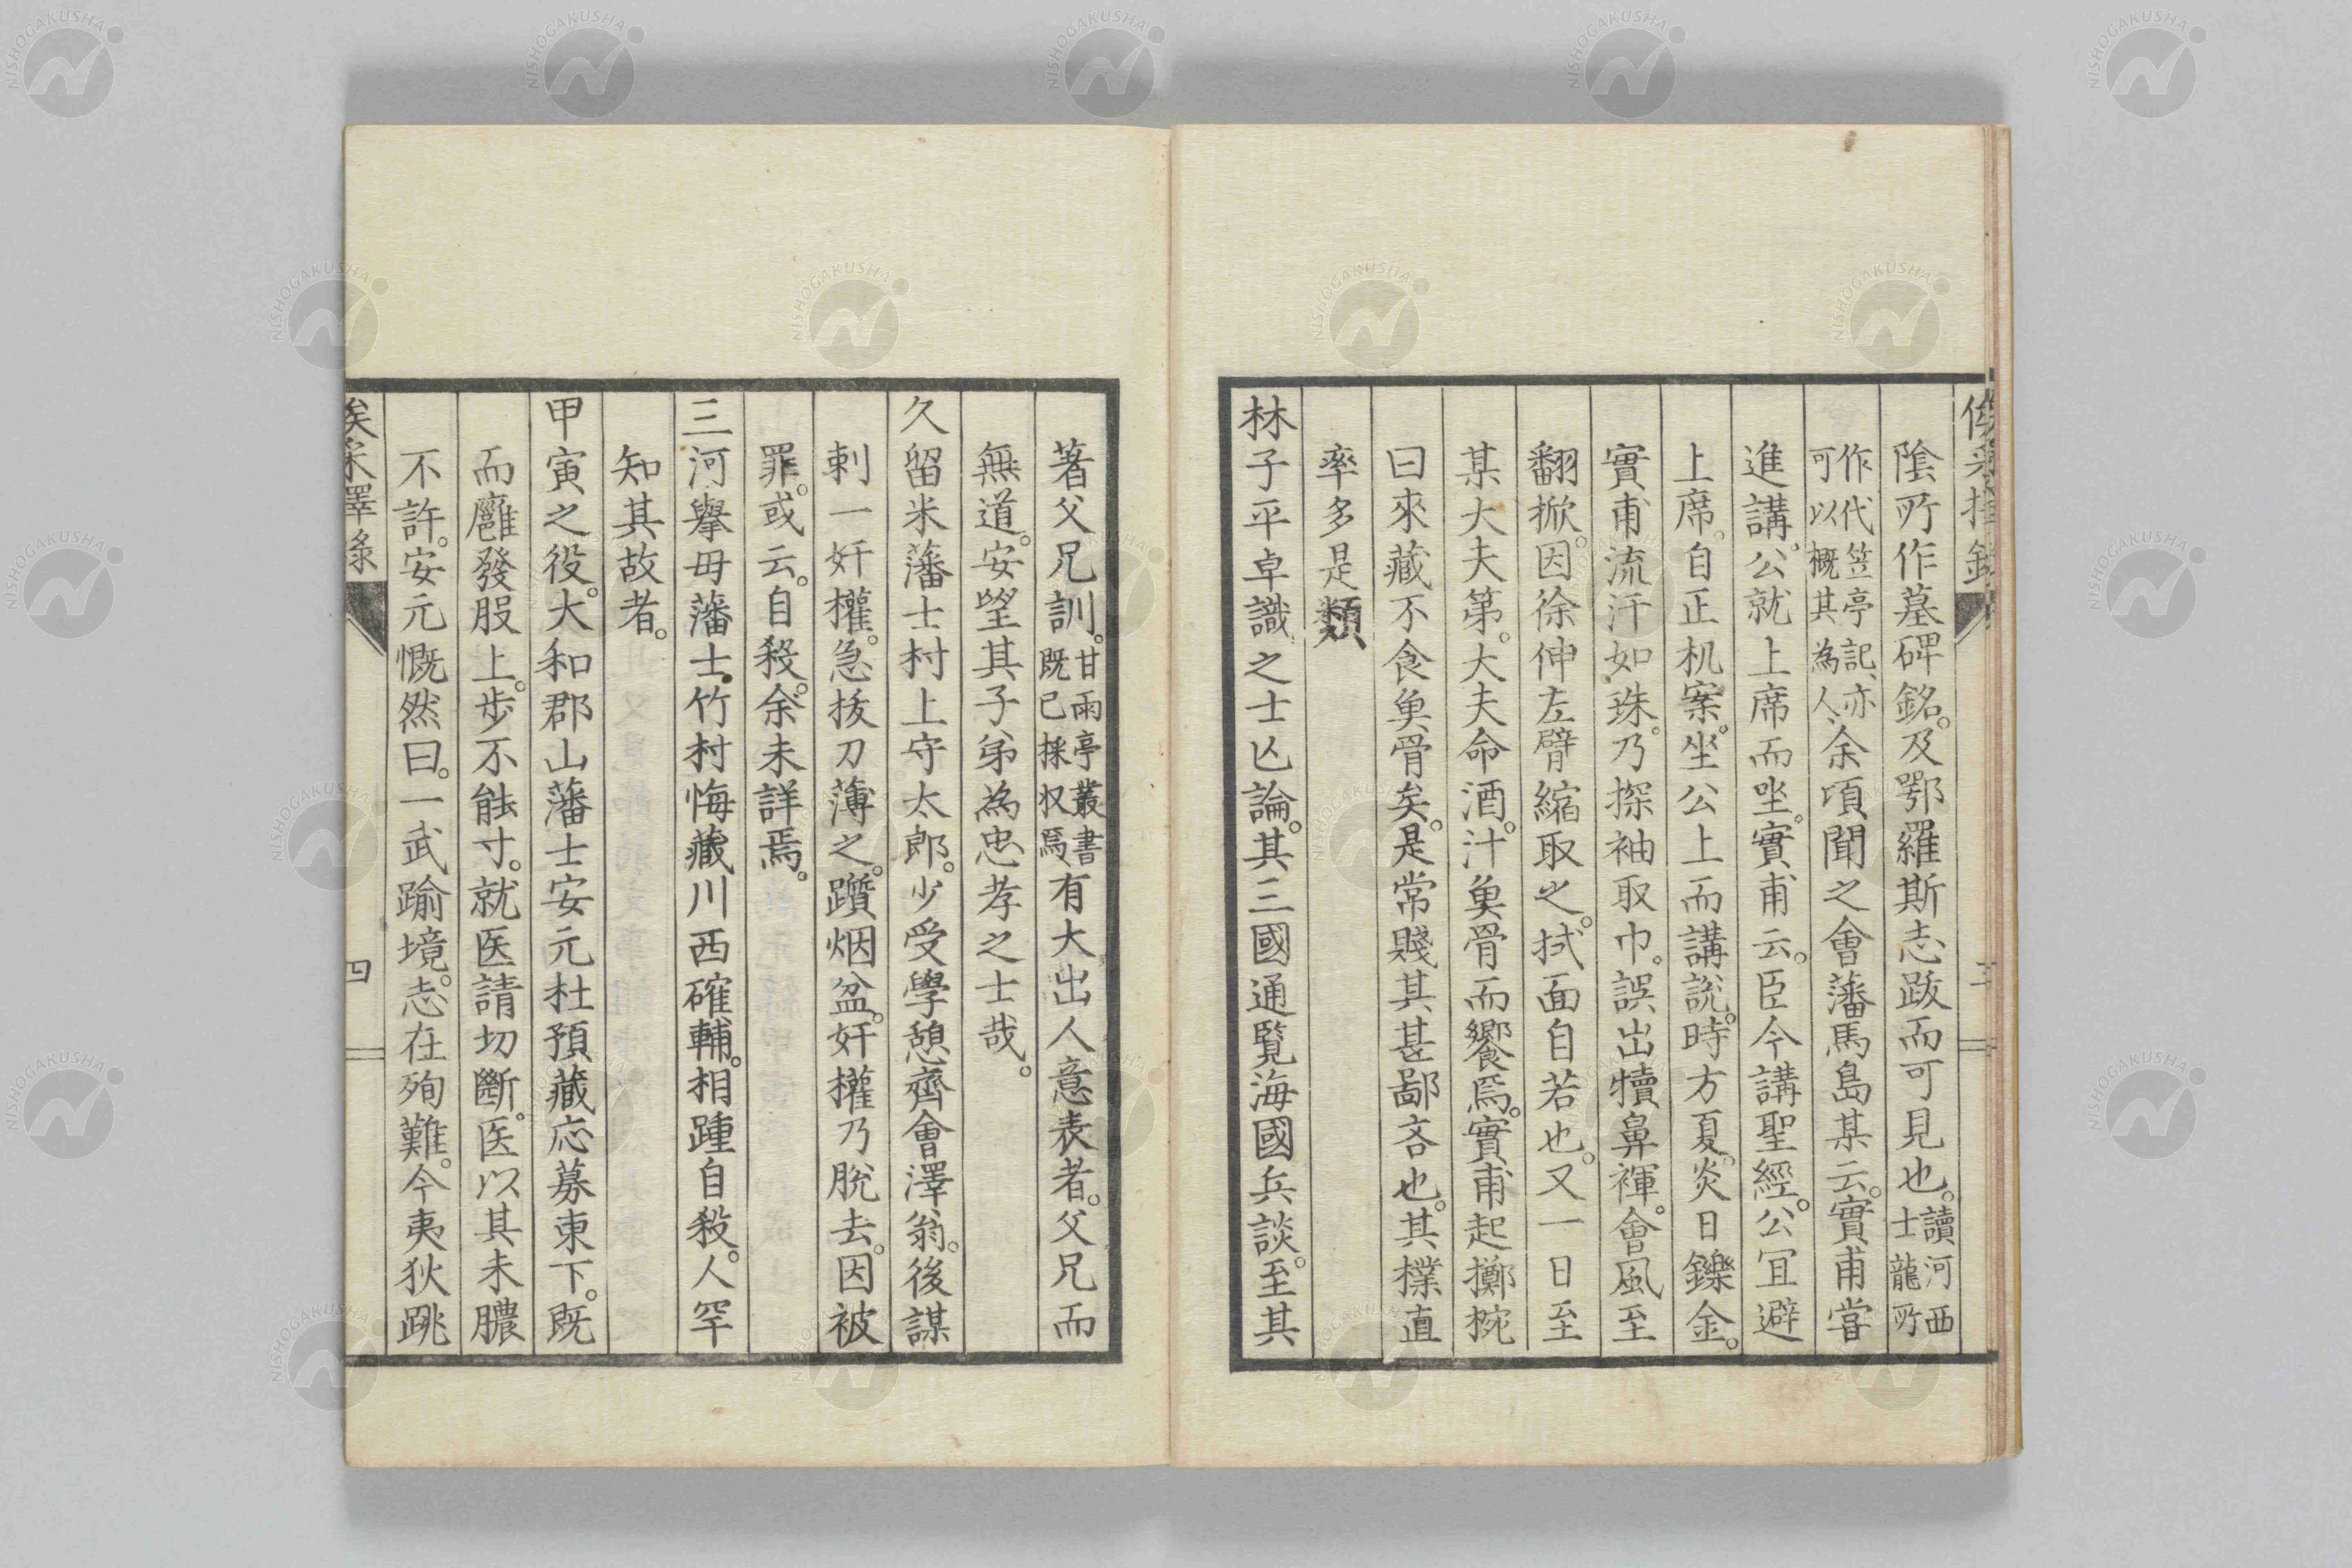 俟采擇錄
陰所作墓碑銘。及鄂羅斯志跋而可見也。讀河西士龍所
作代笠亭記、亦可以概其為人、余頃聞之會藩馬島某云。實甫嘗
進講。公就上席而坐。實甫云。臣今講聖經。公宜避
上席。自正机案。坐公上而講說。時方夏。炎日鑠金。
實甫流汗如珠。乃探袖取巾。誤出犢鼻褌。會風至
翻掀。因徐伸左臂縮取之。拭面自若也。又一日至
某大夫第。大夫命酒。汁魚骨而饗焉。實甫起擲椀
曰來藏不食魚骨矣。是常賤其甚鄙吝也。其樸直
率多是類
林子平卓識之士也論。其三國通覧海國兵談。至其
著父兄訓。甘雨亭叢書既已採收焉有大出人意表者。父兄而
無道。安望其子弟為忠孝之士哉。
久留米藩士村上守太郎。少受學憩齊會澤翁。後謀
刺一奸權。急抜刀薄之。躓烟盆。奸權乃脫去。因被
罪。或云。自殺。余未詳焉。
三河擧母藩士。竹村悔藏川西確輔。相踵自殺。人罕
知其故者。
甲寅之役。大和郡山藩士安元杜預藏応募東下。既
而癰發股上。步不能寸。就医請切斷。医以其未膿
不許。安元慨然曰。一武踰境。志在殉難。今夷狄跳
俟采擇錄
四